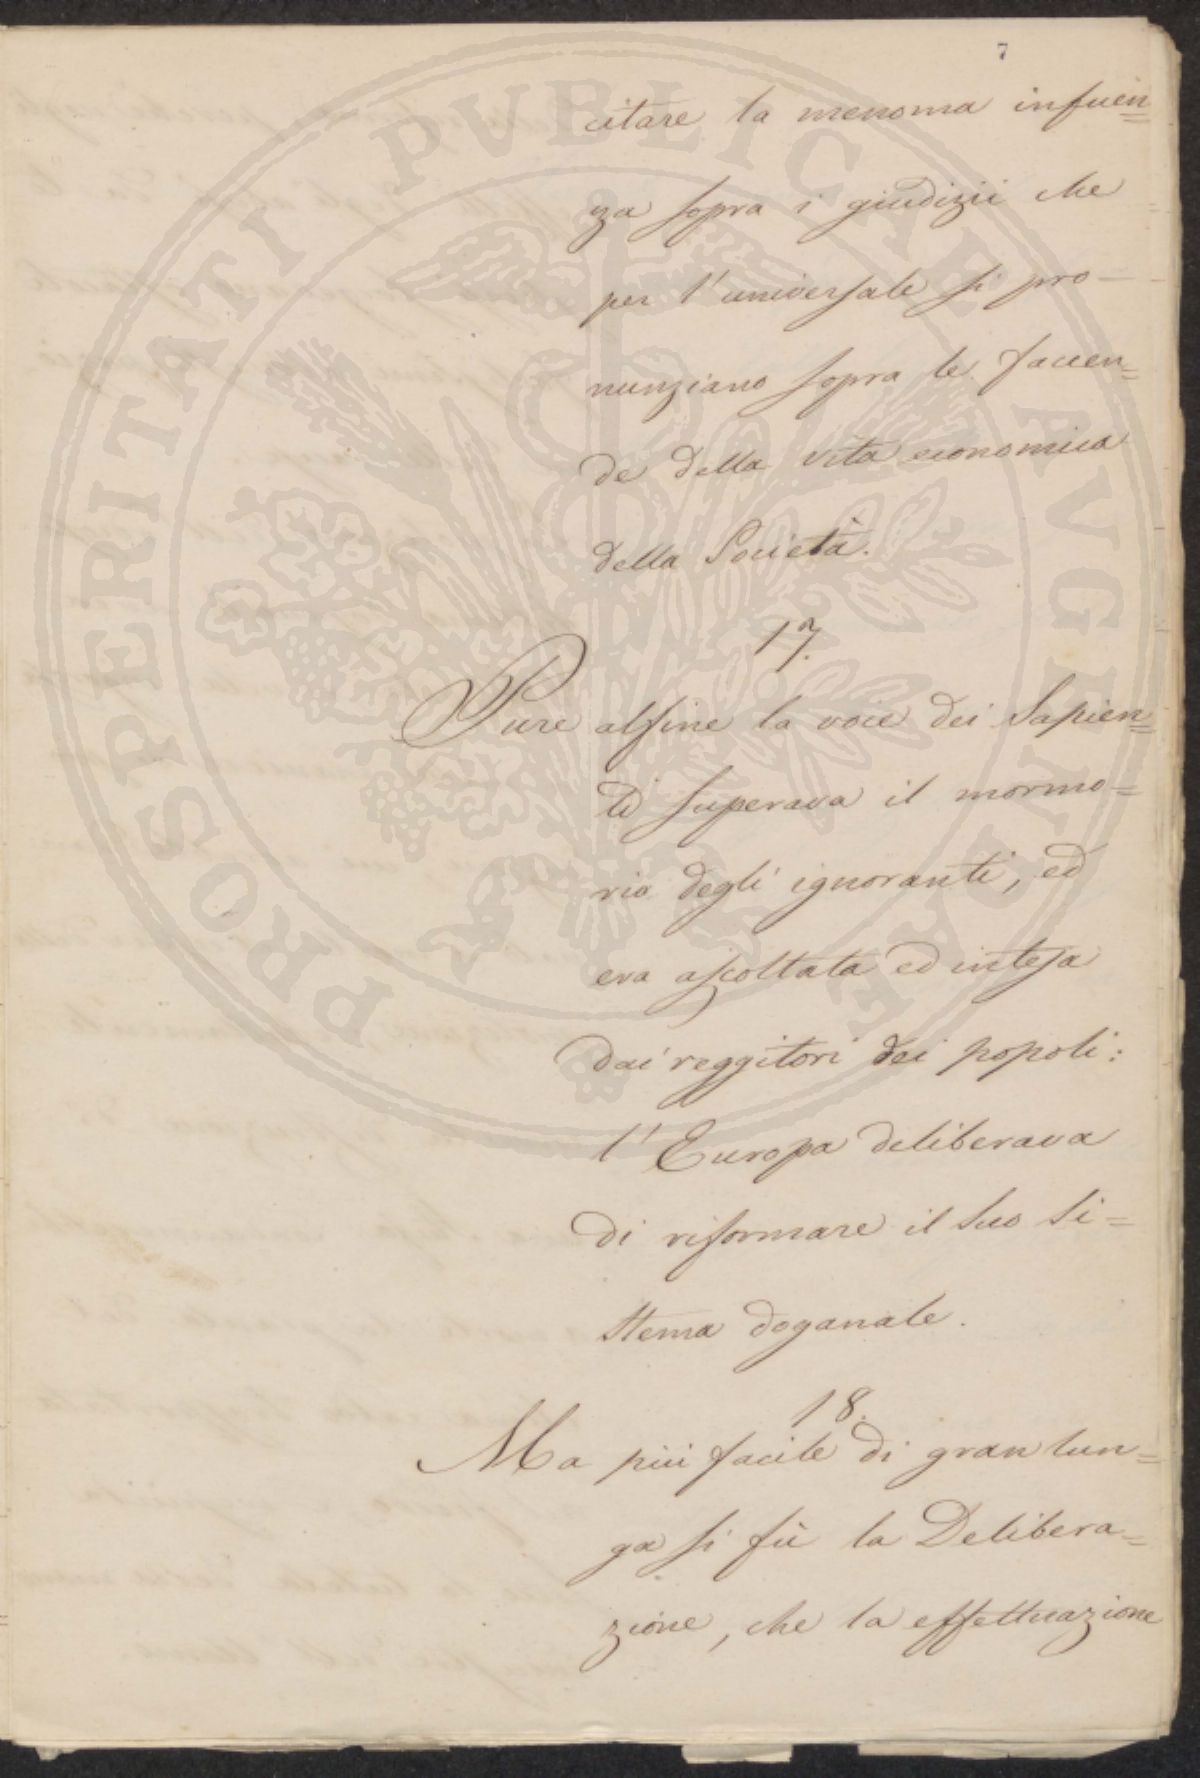 7
citare la menoma infuen=
za sopra i giudizii che
per l'universale si pro-
nunziano sopra le faccen=
de della vita economica
della Società.
17.
Pure alfine la voce dei Sapien=
ti superava il mormo=
rio degli ignoranti, ed
era ascoltata ed intesa
dai reggitori dei popoli:
l'Europa deliberava
di riformare il suo si=
stema doganale.
18.
Ma più facile di gran lun=
ga si fù la Delibera=
zione, che la effettuazione
PROSPERITATI PVBLICAE AVGENDAE